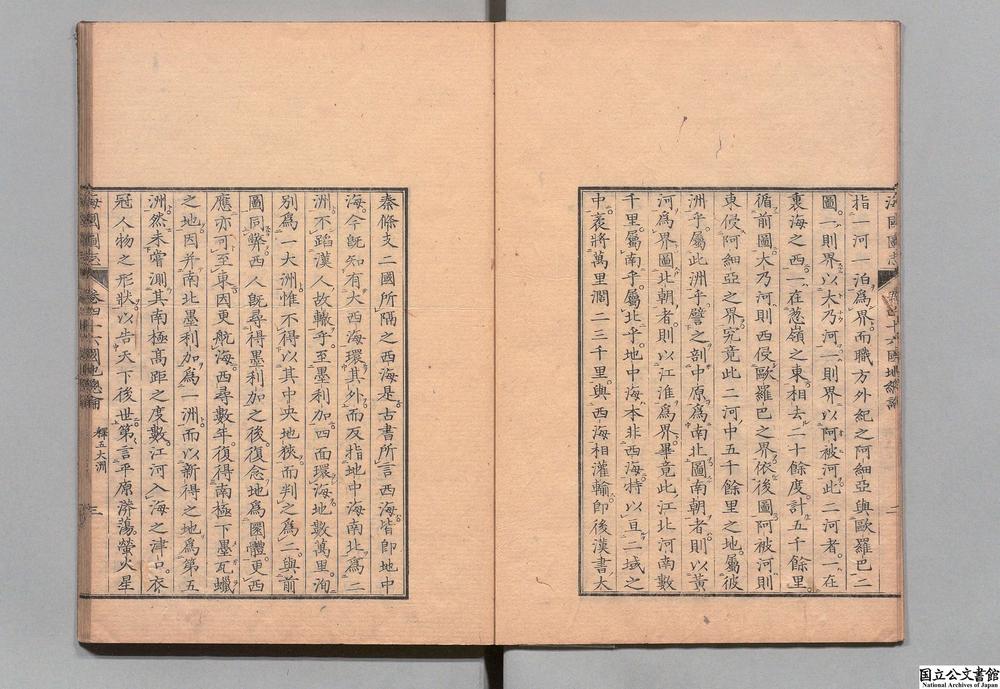 指一河一泊爲界而職方外紀之阿細亞與歐羅巴二
圖一則界以大乃河一則界以阿被河此二河者一在
裏海之西一在葱嶺之東相去二十餘度計五千餘里
循前圖大乃河則西侵歐羅巴之界依後圖阿被河則
東侵阿細亞之界究竟此二河中五千餘里之地屬彼
洲乎屬此洲乎譬之剖中原爲南北圖南朝者則以黃
河爲界圖北朝者則以江淮爲界畢竟此江北河南數
千里屬南乎屬北乎地中海本非西海特以亘二域之
中袤將萬里濶二三千里與西海相灌輸即後漢書大
秦條支二國所隔之西海是古書所言西海皆即地中
海今既知有大西海環其外而反指地中海南北爲二
洲不蹈漢人故轍乎至墨利加四面環海地數萬里洵
別爲一大洲惟不得以其中央地狹而判之爲二與前
圖同弊西人既尋得墨利加之後復念地爲圜體更西
應亦可至東因更航海西尋數年復得南極下墨瓦蠟
之地因并南北墨利加爲一洲而以新得之地爲第五
洲然未嘗測其南極高距之度數江河入海之津口衣
冠人物之形狀以告天下後世第言平原漭蕩螢火星
海國圖志 卷四十六 國地總論 釋五大洲 三
国立公文書館
National Archives of Japan